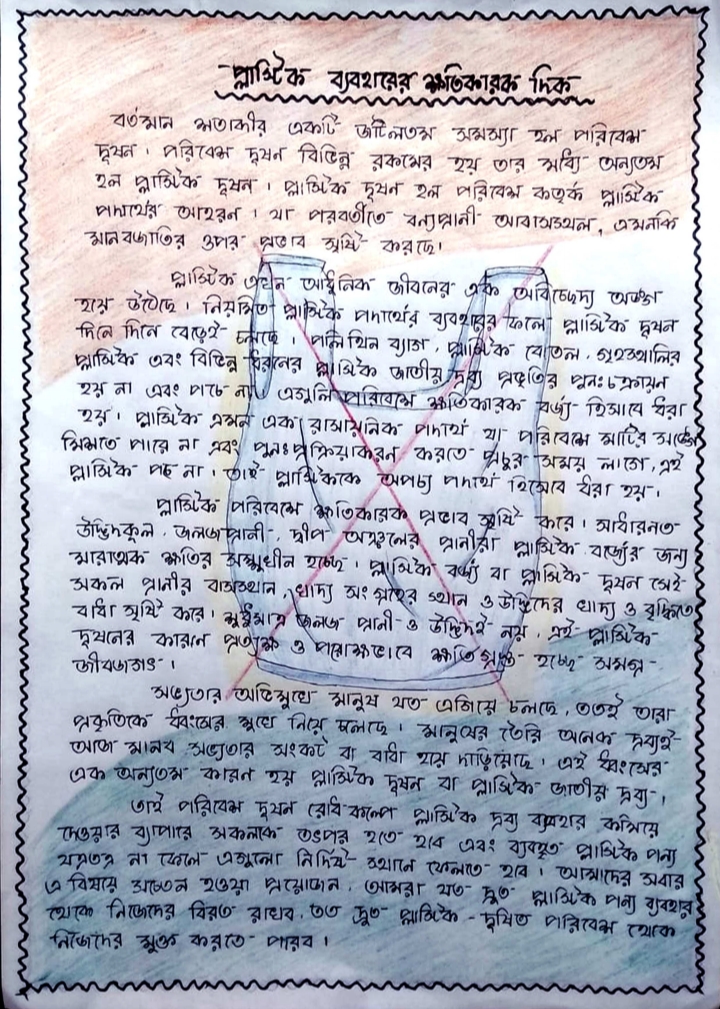 প্লাস্টিক ব্যবহারের ক্ষতিকারক দিক
বর্তমান শতাব্দীর একটি জটিলতম সমস্যা হল পরিবেশ
দূষন। পরিবেশ দূষন বিভিন্ন রকমের হয় তার মধ্যে অন্যতম
হল প্লাস্টিক দূষন। প্লাস্টিক দূষন হল পরিবেশ কতৃর্ক প্লাস্টিক
পদার্থের আহরন। যা পরবর্তীতে বন্যপ্রানী আবাসস্থল, এমনকি
মানবজাতির ওপর প্রভাব সৃষ্টি করছে।
প্লাস্টিক এখন আধুনিক জীবনের এক অবিচ্ছেদ্য অঙ্গ
হয়ে উঠেছে। নিয়মিত প্লাস্টিক পদার্থের ব্যবহারের ফলে প্লাস্টিক দূষন
দিনে দিনে বেড়েই চলছে। পলিথিন ব্যাগ, প্লাস্টিক বোতল, গৃহস্থালির
প্লাস্টিক এবং বিভিন্ন ধরনের প্লাস্টিক জাতীয় দ্রব্য প্রভৃতির পুনঃচক্রায়ন
হয় না এবং পচে না। এগুলি পরিবেশে ক্ষতিকারক বর্জ্য হিসাবে ধরা
হয়। প্লাস্টিক এমন এক রাসায়নিক পদার্থ যা পরিবেশে মাটির সঙ্গে
মিশতে পারে না এবং পুনঃপ্রক্রিয়াকরন করতে প্রচুর সময় লাগে, এই
প্লাস্টিক পচে না। তাই প্লাস্টিককে অপচ্য পদার্থ হিসেবে ধরা হয়।
প্লাস্টিক পরিবেশে ক্ষতিকারক প্রভাব সৃষ্টি করে। সাধারনত
উদ্ভিদকূল, জলজপ্রানী, দ্বীপ অঞ্চলের প্রানীরা প্লাস্টিক বর্জ্যের জন্য
মারাত্মক ক্ষতির সম্মুখীন হচ্ছে। প্লাস্টিক বর্জ্য বা প্লাস্টিক দূষন সেই
সকল প্রানীর বাসস্থান, খাদ্য সংগ্রহের স্থান ও উদ্ভিদের খাদ্য ও বৃদ্ধিতে
বাধা সৃষ্টি করে। শুধুমাত্র জলজ প্রানী ও উদ্ভিদই নয়, এই প্লাস্টিক
দূষনের কারনে প্রত্যক্ষ ও পরোক্ষভাবে ক্ষতিগ্রস্ত হচ্ছে সমগ্র
জীবজগৎ।
সভ্যতার অভিমুখে মানুষ যত এগিয়ে চলছে, ততই তারা
প্রকৃতিকে ধ্বংসের মুখে নিয়ে চলছে। মানুষের তৈরি অনেক দ্রব্যই
আজ মানব সভ্যতার সংকট বা বাধা হয়ে দাড়িয়েছে। এই ধ্বংসের
এক অন্যতম কারন হয় প্লাস্টিক দূষন বা প্লাস্টিক জাতীয় দ্রব্য।
তাই পরিবেশ দূষন রোধকল্পে প্লাস্টিক দ্রব্য ব্যবহার কমিয়ে
দেওয়ার ব্যাপারে সকলকে তৎপর হতে হবে এবং ব্যবহৃত প্লাস্টিক পন্য
যত্রতত্র না ফেলে এগুলো নির্দিষ্ট স্থানে ফেলতে হবে। আমাদের সবার
এ বিষয়ে সচেতন হওয়া প্রয়োজন, আমরা যত দ্রুত প্লাস্টিক পন্য ব্যবহার
থেকে নিজেদের বিরত রাখব, তত দ্রুত প্লাস্টিক-দূষিত পরিবেশ থেকে
নিজেদের মুক্ত করতে পারব।